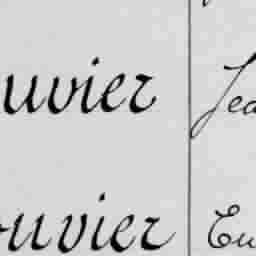 uvier Jea
ouvier Eu